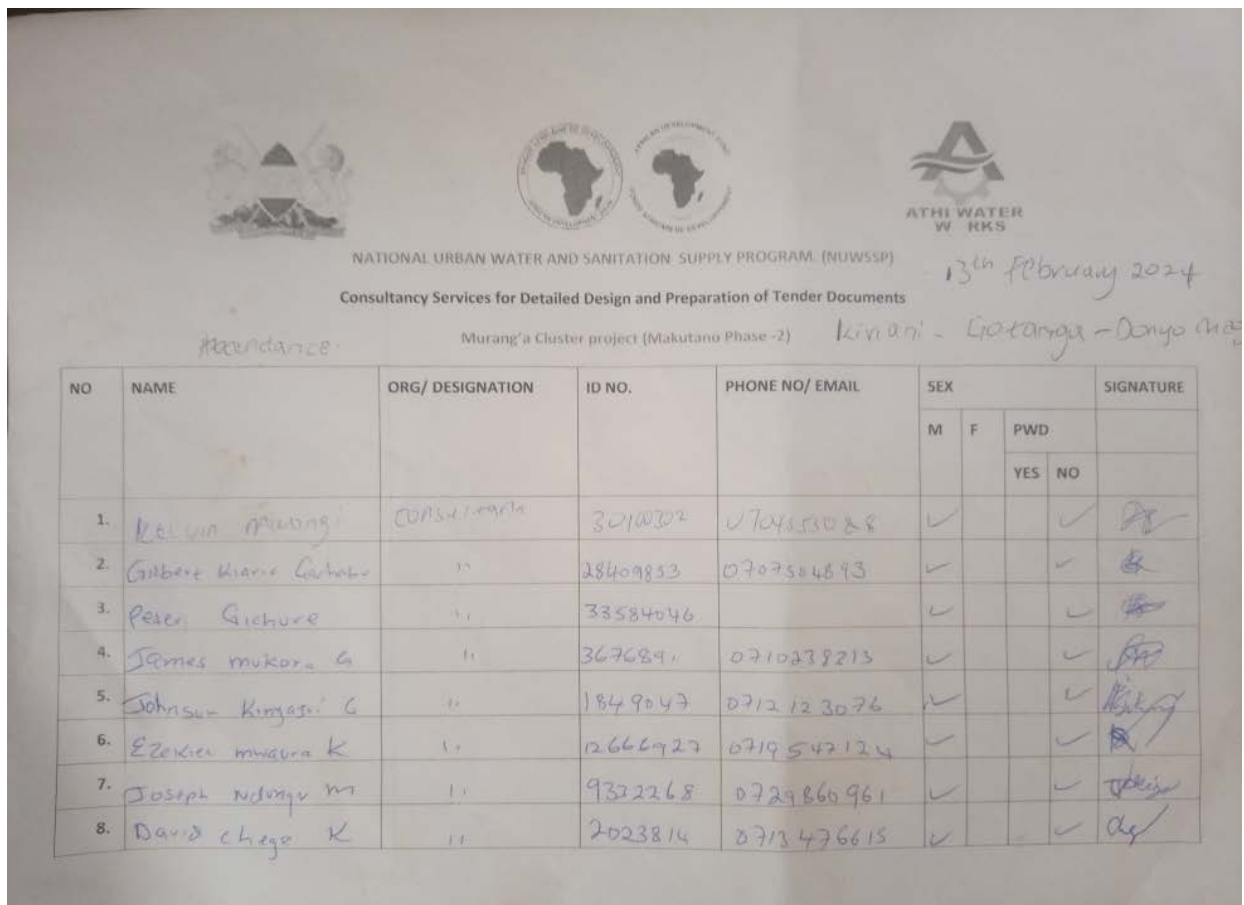 ATHI WATER
W RKS
NATIONAL URBAN WATER AND SANITATION SUPPLY PROGRAM. (NUWSSP)
13th February 2024
Consultancy Services for Detailed Design and Preparation of Tender Documents
Attendance.
Murang'a Cluster project (Makutano Phase -2) - Gatanga - Donyo
NO NAME ORG/ DESIGNATION ID NO. PHONE NO/ EMAIL SEX SIGNATURE
M F PWD
YES NO
1. Kelvin Mwangi 30100302
2. Gilbert 28409853 0707504893
3. Peter Gichure 33584046
4. James Mukora G 0710239213
5. Johnson C 1849047 0712123076
6. Ezekiel mwaura K 12666927 0719542124
7. Joseph Ndungu M 9322268 0729860961
8. David Chege K 2023814 0713476615